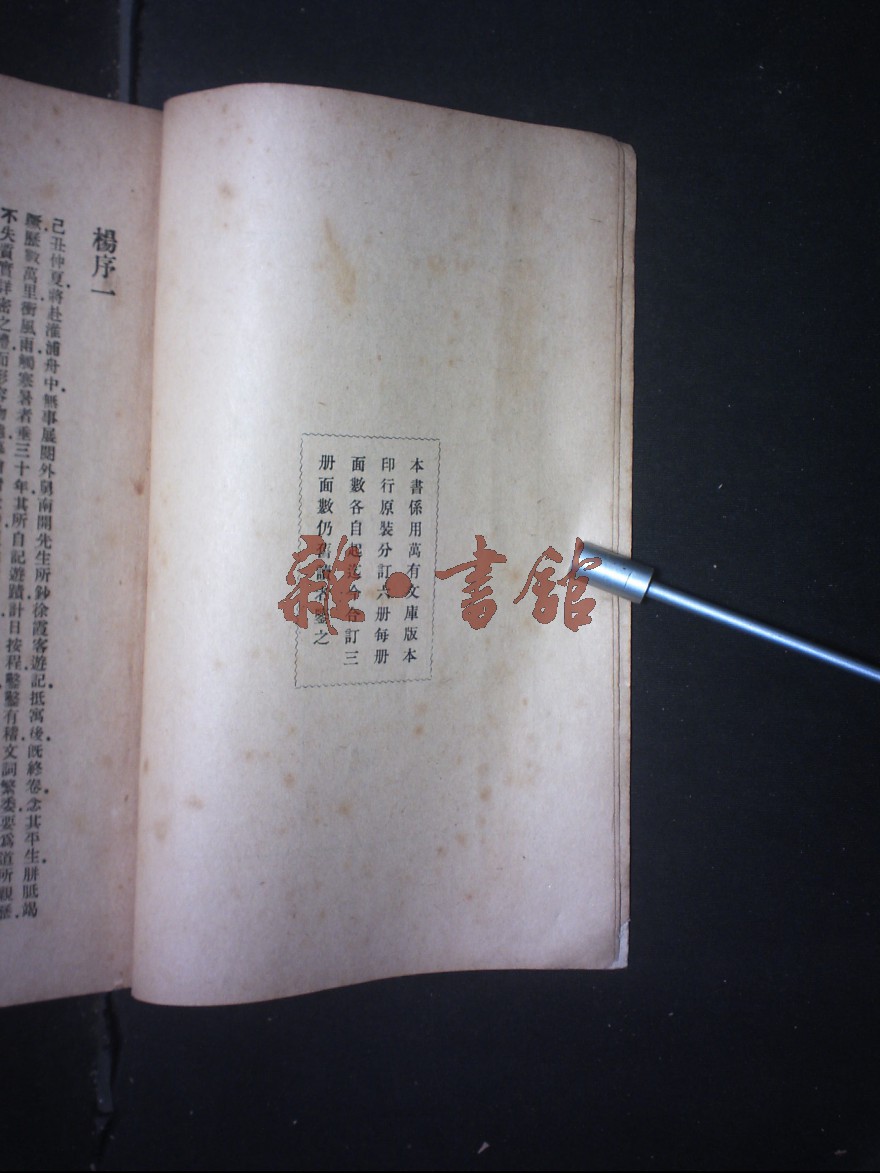 本書係用萬有文庫版本
印行原裝分訂六册每册
面數各自起迄今合訂三
册面數仍舊讀者鑒之
雜·書館
楊序一
己丑仲夏將赴淮浦舟中無事展閱外舅南開先生所鈔徐霞客遊記抵寓後既終卷念其平生胼胝竭
蹶歷數萬里衝風雨觸寒暑者垂三十年其所自記遊蹟計日按程鑿鑿有稽文詞繁委要爲道所親歷
不失質實詳密之體而形容物